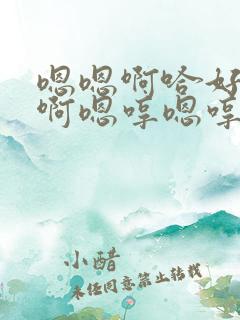 嗯嗯啊哈好
啊嗯哼嗯哼
小醋
未经同意禁止转载